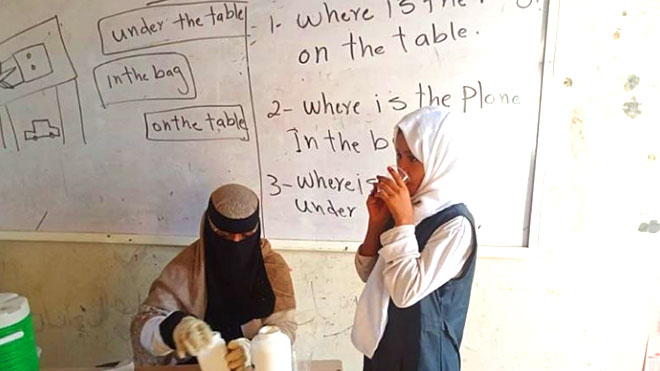 under the table
in the bag
on the table
1- where is the
on the table.
2- where is the Plone
In the b
3- where is
under